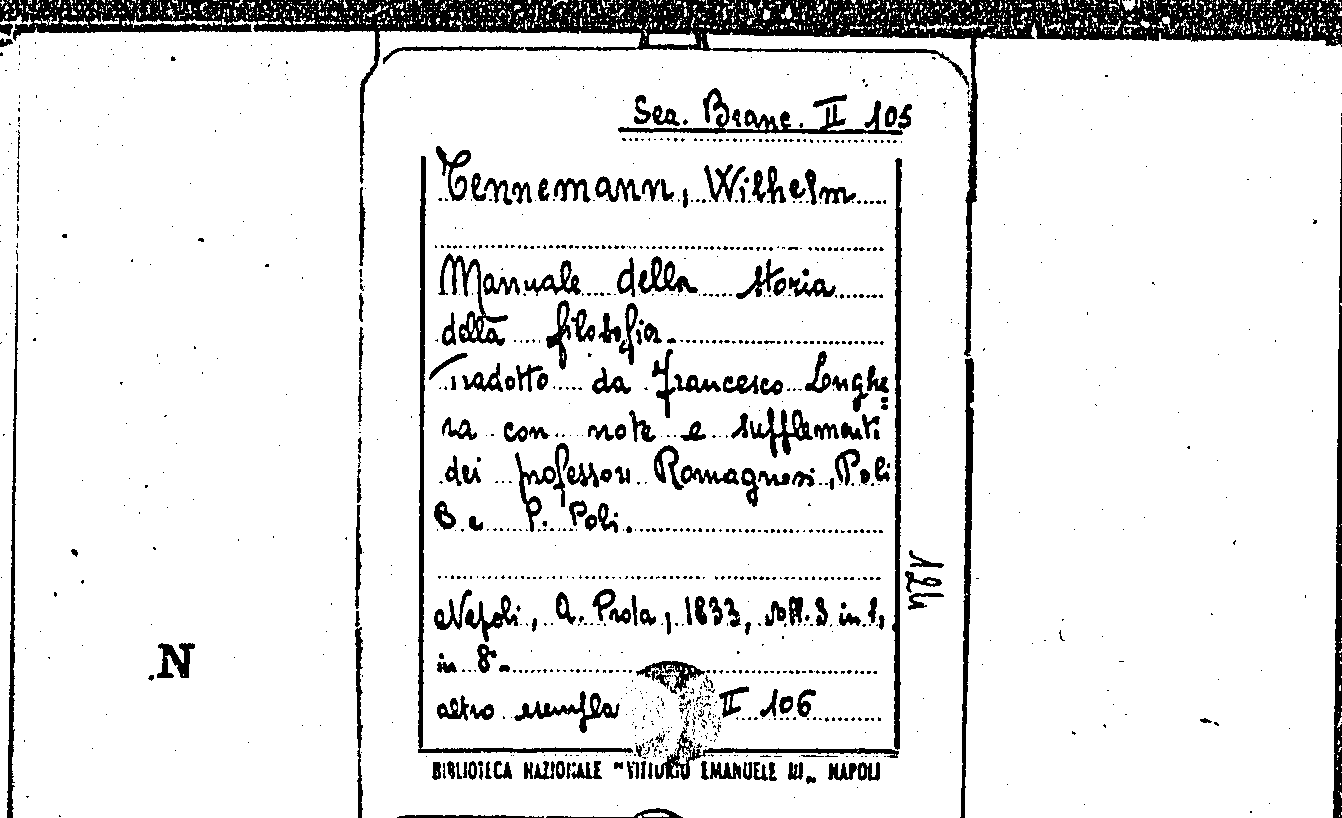 Sez. Branc. II 105
Tennemann, Wilhelm
Manuale della storia
della filosofia.
Tradotto da Francesco Longhe=
ra con note e supplementi
dei professori Romagnosi, Poli
B e P. Poli.
124
Napoli, A. Prota, 1833, voll. 3 in 1,
in 8°.
N
altro esempla II 106
BIBLIOTECA NAZIONALE "VITTORIO EMANUELE III„ NAPOLI